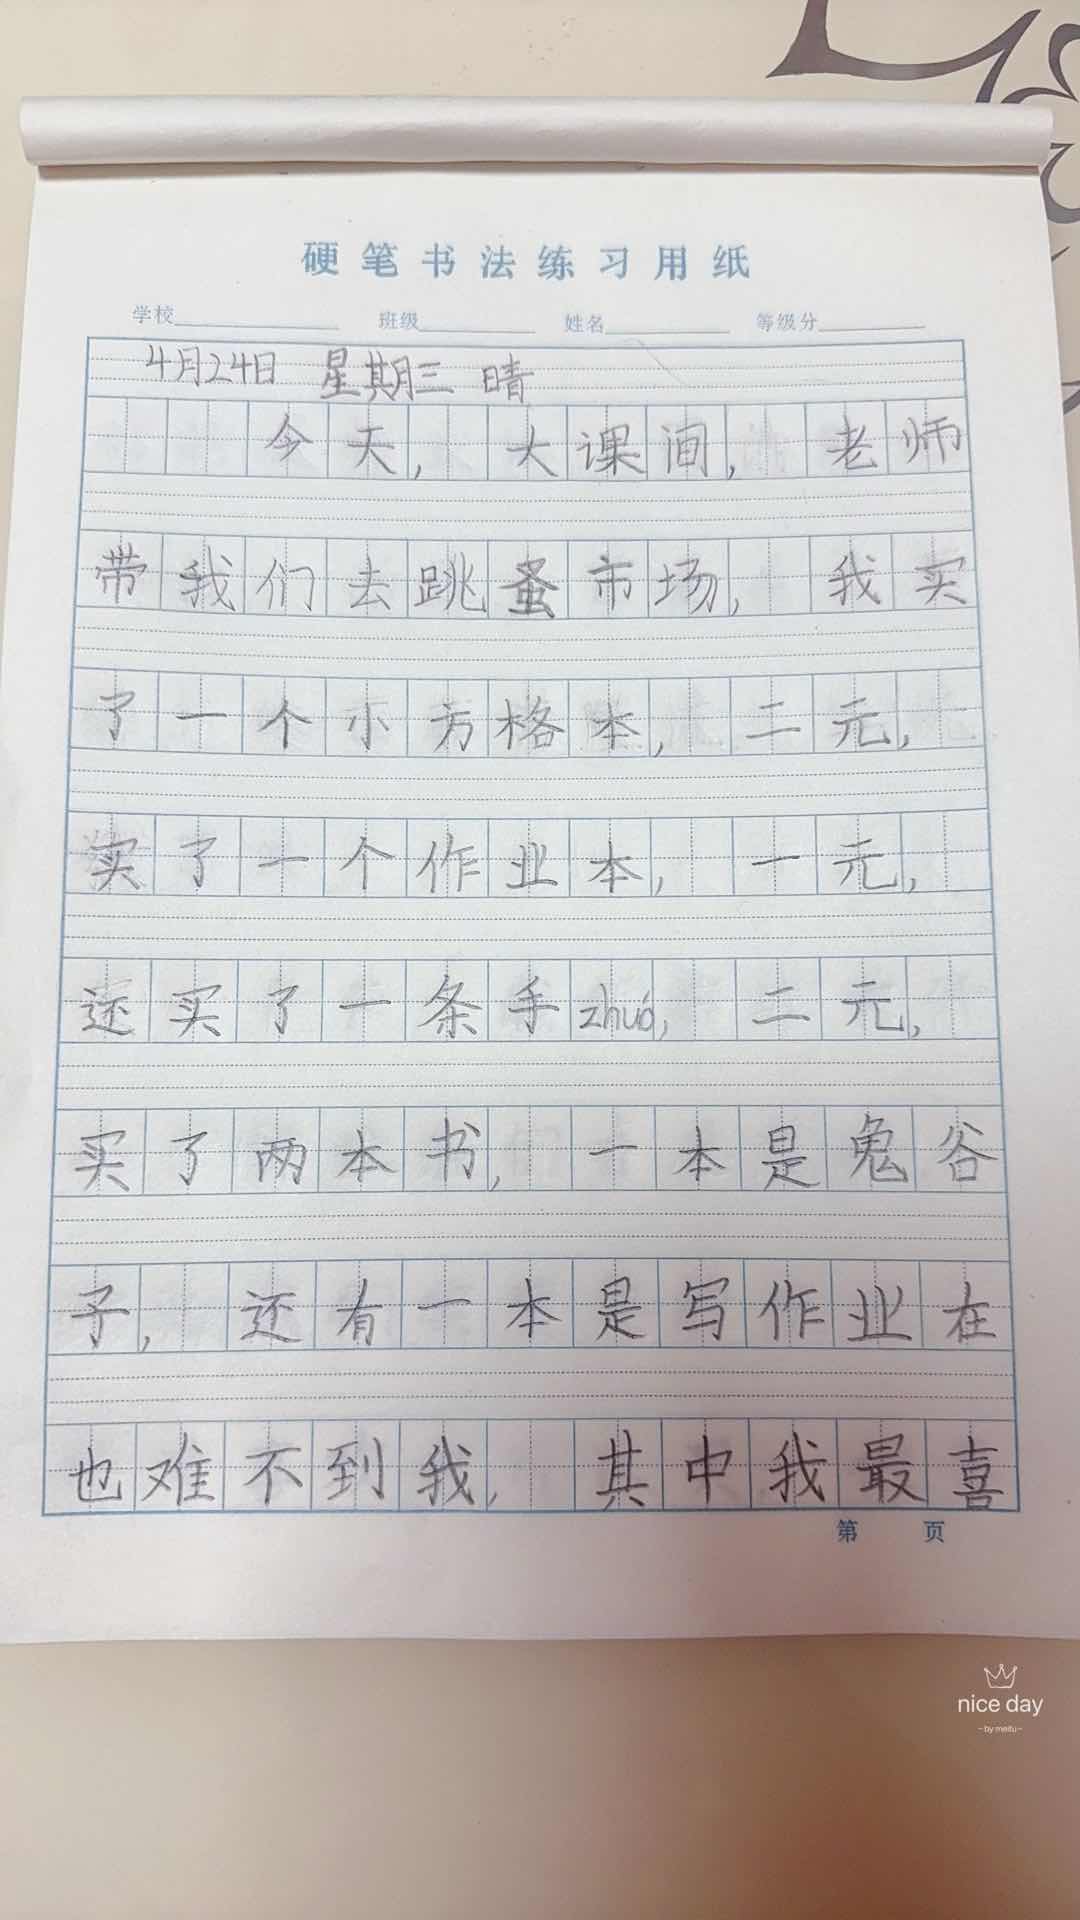 硬笔书法练习用纸
学校 班级 姓名 等级分
4月24日 星期三 晴
今天,大课间,老师
带我们去跳蚤市场,我买
了一个小方格本,二元,
买了一个作业本,一元,
还买了一条手zhuó,二元,
买了两本书,一本是鬼谷
子,还有一本是写作业在
也难不到我,其中我最喜
第 页
nice day
-by meitu-